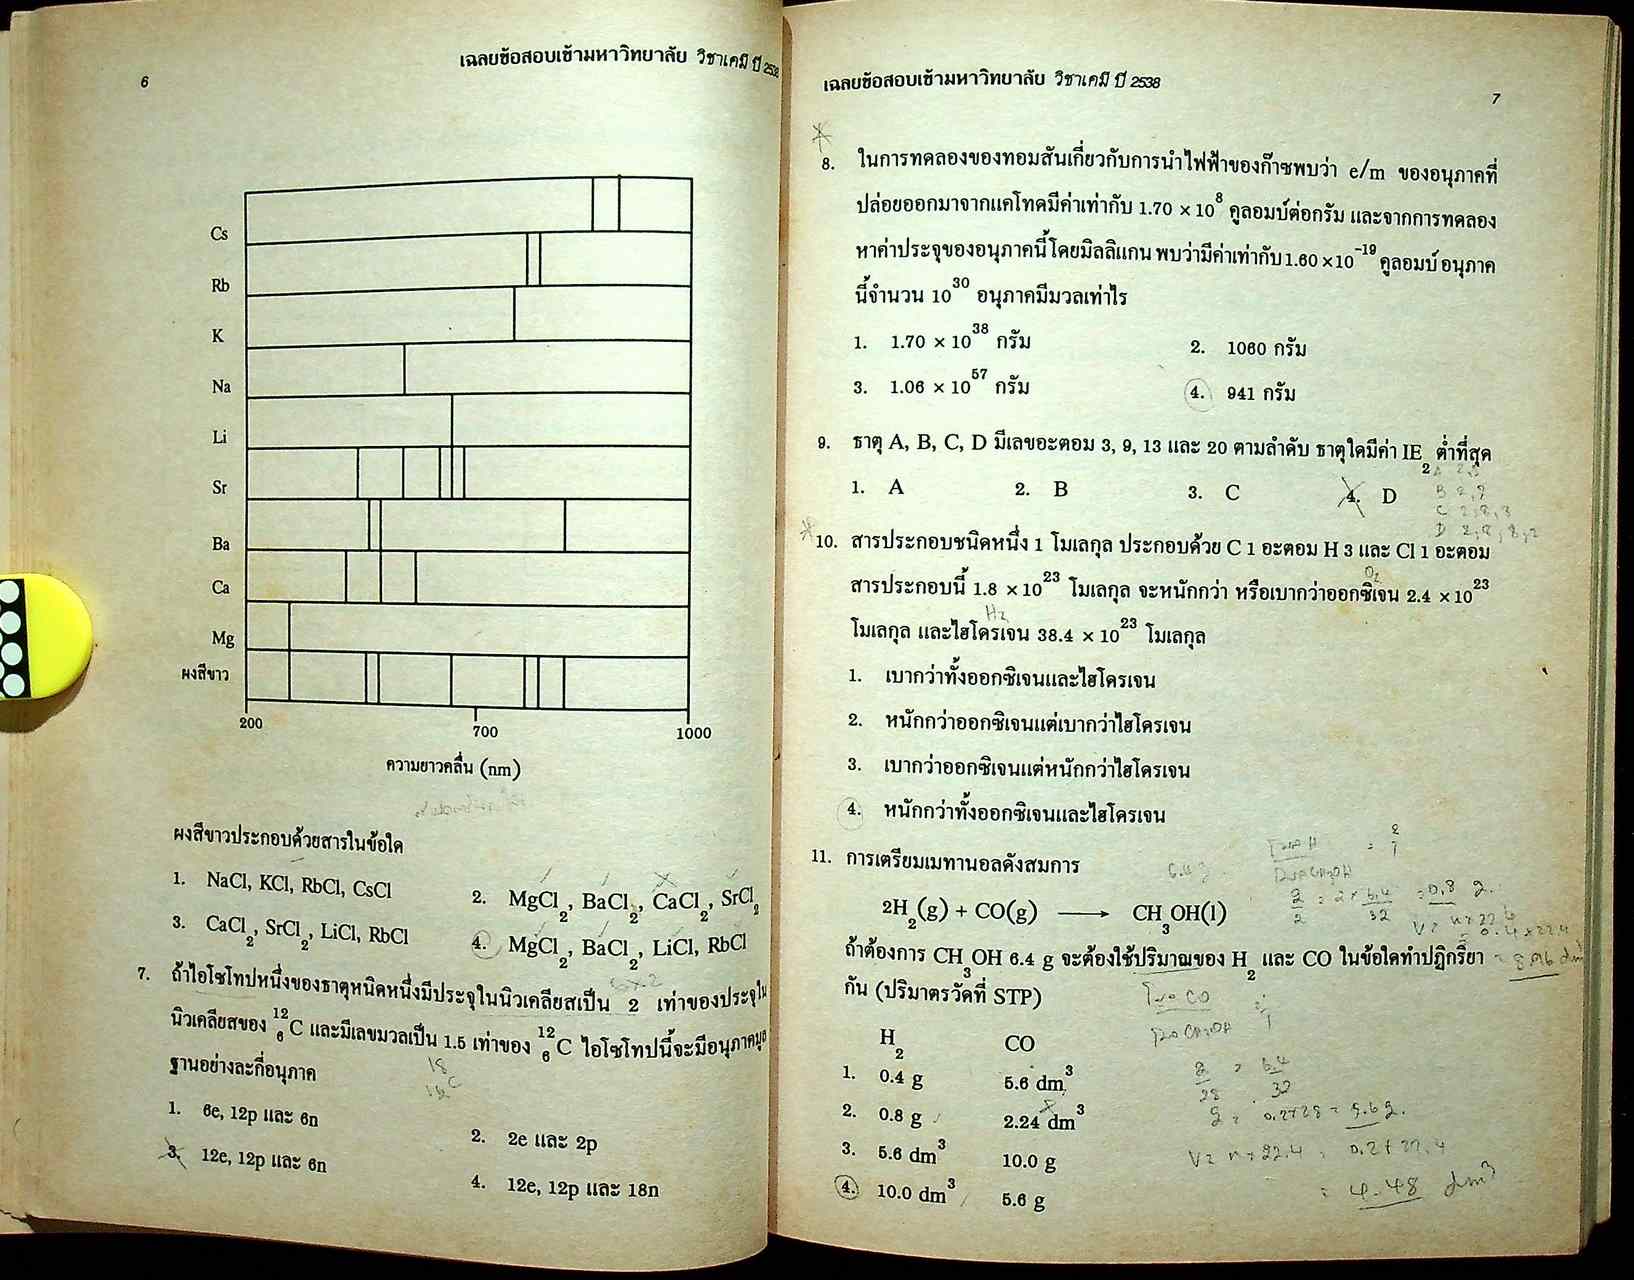 6
เฉลยข้อสอบเข้ามหาวิทยาลัย วิชาเคมี ปี 2538
Cs
Rb
K
Na
Li
Sr
Ba
Ca
Mg
ผงสีขาว
200
700
1000
ความยาวคลื่น (nm)
ผงสีขาวประกอบด้วยสารในข้อใด
1. NaCl, KCl, RbCl, CsCl
2. MgCl₂, BaCl₂, CaCl₂, SrCl₂
3. CaCl₂, SrCl₂, LiCl, RbCl
4. MgCl₂, BaCl₂, LiCl, RbCl
7. ถ้าไอโซโทปหนึ่งของธาตุหนิดหนึ่งมีประจุในนิวเคลียสเป็น 2 เท่าของประจุใน
นิวเคลียสของ ¹²₆C และมีเลขมวลเป็น 1.5 เท่าของ ¹²₆C ไอโซโทปนี้จะมีอนุภาคมูล
ฐานอย่างละกี่อนุภาค
1. 6e, 12p และ 6n
2. 2e และ 2p
3. 12e, 12p และ 6n
4. 12e, 12p และ 18n
เฉลยข้อสอบเข้ามหาวิทยาลัย วิชาเคมี ปี 2538
7
8. ในการทดลองของทอมสันเกี่ยวกับการนำไฟฟ้าของก๊าซพบว่า e/m ของอนุภาคที่
ปล่อยออกมาจากแคโทดมีค่าเท่ากับ 1.70 × 10⁸ คูลอมบ์ต่อกรัม และจากการทดลอง
หาค่าประจุของอนุภาคนี้โดยมิลลิแกน พบว่ามีค่าเท่ากับ 1.60 × 10⁻¹⁹ คูลอมบ์ อนุภาค
นี้จำนวน 10³⁰ อนุภาคมีมวลเท่าไร
1. 1.70 × 10³⁸ กรัม
2. 1060 กรัม
3. 1.06 × 10⁵⁷ กรัม
4. 941 กรัม
9. ธาตุ A, B, C, D มีเลขอะตอม 3, 9, 13 และ 20 ตามลำดับ ธาตุใดมีค่า IE₂ ต่ำที่สุด
1. A
2. B
3. C
4. D
B 2,7
C 2,8,3
D 2,8,8,2
10. สารประกอบชนิดหนึ่ง 1 โมเลกุล ประกอบด้วย C 1 อะตอม H 3 และ Cl 1 อะตอม
O₂
สารประกอบนี้ 1.8 × 10²³ โมเลกุล จะหนักกว่า หรือเบากว่าออกซิเจน 2.4 × 10²³
H₂
โมเลกุล และไฮโดรเจน 38.4 × 10²³ โมเลกุล
1. เบากว่าทั้งออกซิเจนและไฮโดรเจน
2. หนักกว่าออกซิเจนแต่เบากว่าไฮโดรเจน
3. เบากว่าออกซิเจนแต่หนักกว่าไฮโดรเจน
4. หนักกว่าทั้งออกซิเจนและไฮโดรเจน
11. การเตรียมเมทานอลดังสมการ
2H₂(g) + CO(g) ⟶ CH₃OH(l)
ถ้าต้องการ CH₃OH 6.4 g จะต้องใช้ปริมาณของ H₂ และ CO ในข้อใดทำปฏิกริ์ยา
กัน (ปริมาตรวัดที่ STP)
H₂ CO
1. 0.4 g 5.6 dm³
2. 0.8 g 2.24 dm³
3. 5.6 dm³ 10.0 g
4. 10.0 dm³ 5.6 g
= 4.48 dm³